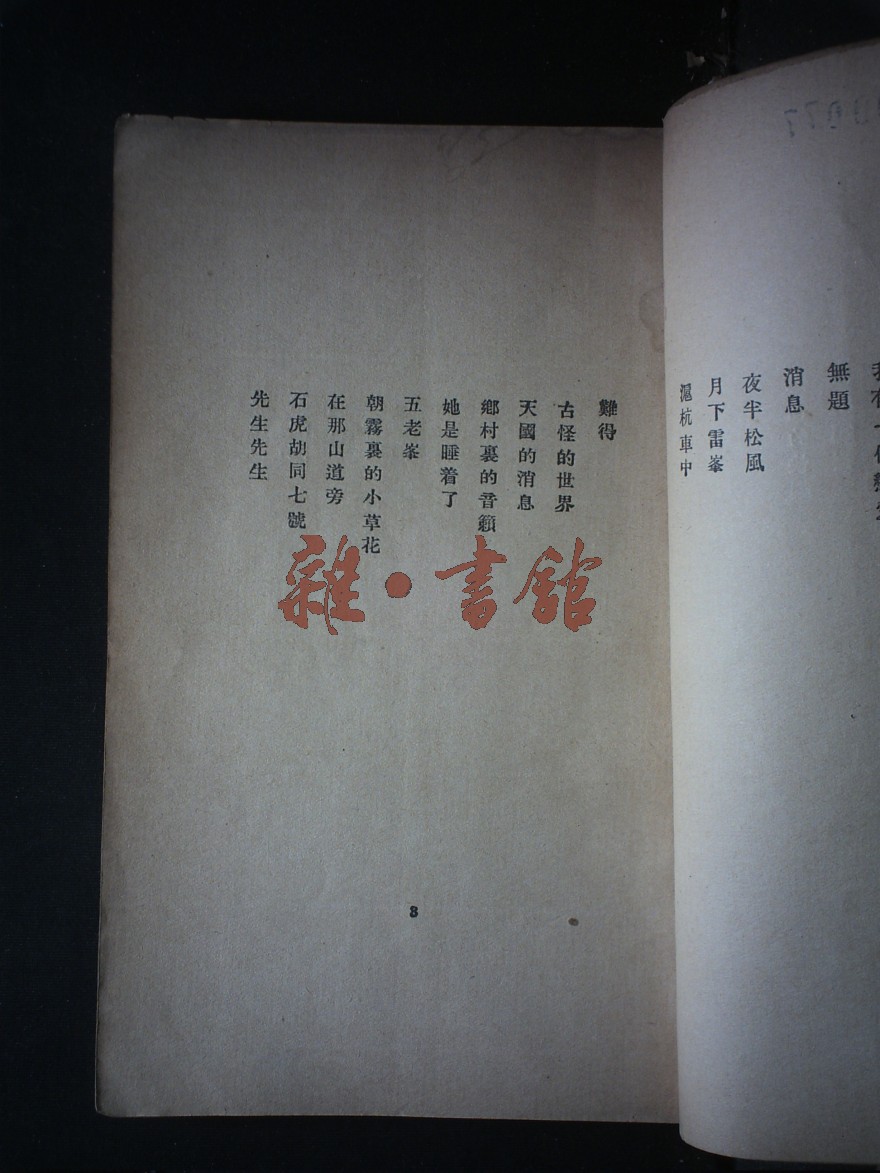 無題
消息
夜半松風
月下雷峯
滬杭車中
難得
古怪的世界
天國的消息
鄉村裏的音籟
她是睡着了
五老峯
朝霧裏的小草花
在那山道旁
石虎胡同七號
先生先生
3
雜·書館